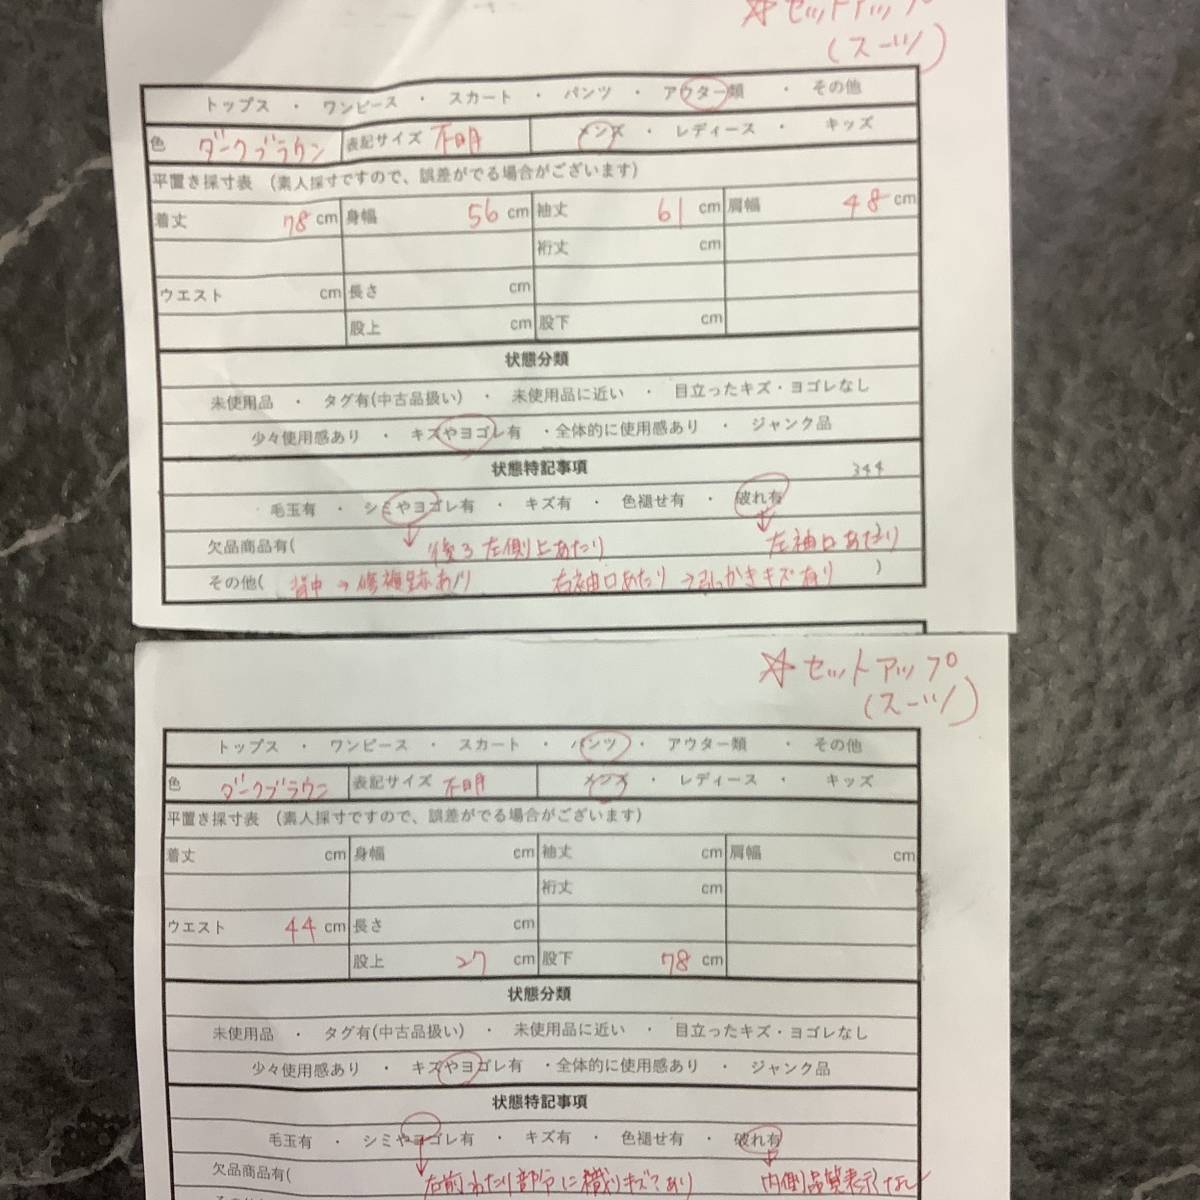 ☆セットアップ
(スーツ)
トップス ・ ワンピース ・ スカート ・ パンツ ・ アウター類 ・ その他
色 ダークブラウン 表記サイズ 不明 メンズ ・ レディース ・ キッズ
平置き採寸表 (素人採寸ですので、誤差がでる場合がございます)
着丈 78 cm 身幅 56 cm 袖丈 61 cm 肩幅 48 cm
裄丈 cm
ウエスト cm 長さ cm
股上 cm 股下 cm
状態分類
未使用品 ・ タグ有(中古品扱い) ・ 未使用品に近い ・ 目立ったキズ・ヨゴレなし
少々使用感あり ・ キズやヨゴレ有 ・全体的に使用感あり ・ ジャンク品
状態特記事項 344
毛玉有 ・ シミやヨゴレ有 ・ キズ有 ・ 色褪せ有 ・ 破れ有
欠品商品有( 後ろ左側上あたり 左袖口あたり
その他( 背中→修複跡あり 右袖口あたり→引っかきキズ有り )
☆セットアップ
(スーツ)
トップス ・ ワンピース ・ スカート ・ パンツ ・ アウター類 ・ その他
色 ダークブラウン 表記サイズ 不明 メンズ ・ レディース ・ キッズ
平置き採寸表 (素人採寸ですので、誤差がでる場合がございます)
着丈 cm 身幅 cm 袖丈 cm 肩幅 cm
裄丈 cm
ウエスト 44 cm 長さ cm
股上 27 cm 股下 78 cm
状態分類
未使用品 ・ タグ有(中古品扱い) ・ 未使用品に近い ・ 目立ったキズ・ヨゴレなし
少々使用感あり ・ キズやヨゴレ有 ・全体的に使用感あり ・ ジャンク品
状態特記事項
毛玉有 ・ シミやヨゴレ有 ・ キズ有 ・ 色褪せ有 ・ 破れ有
欠品商品有( 右前わたり部分に織りキズあり 内側品質表示なし